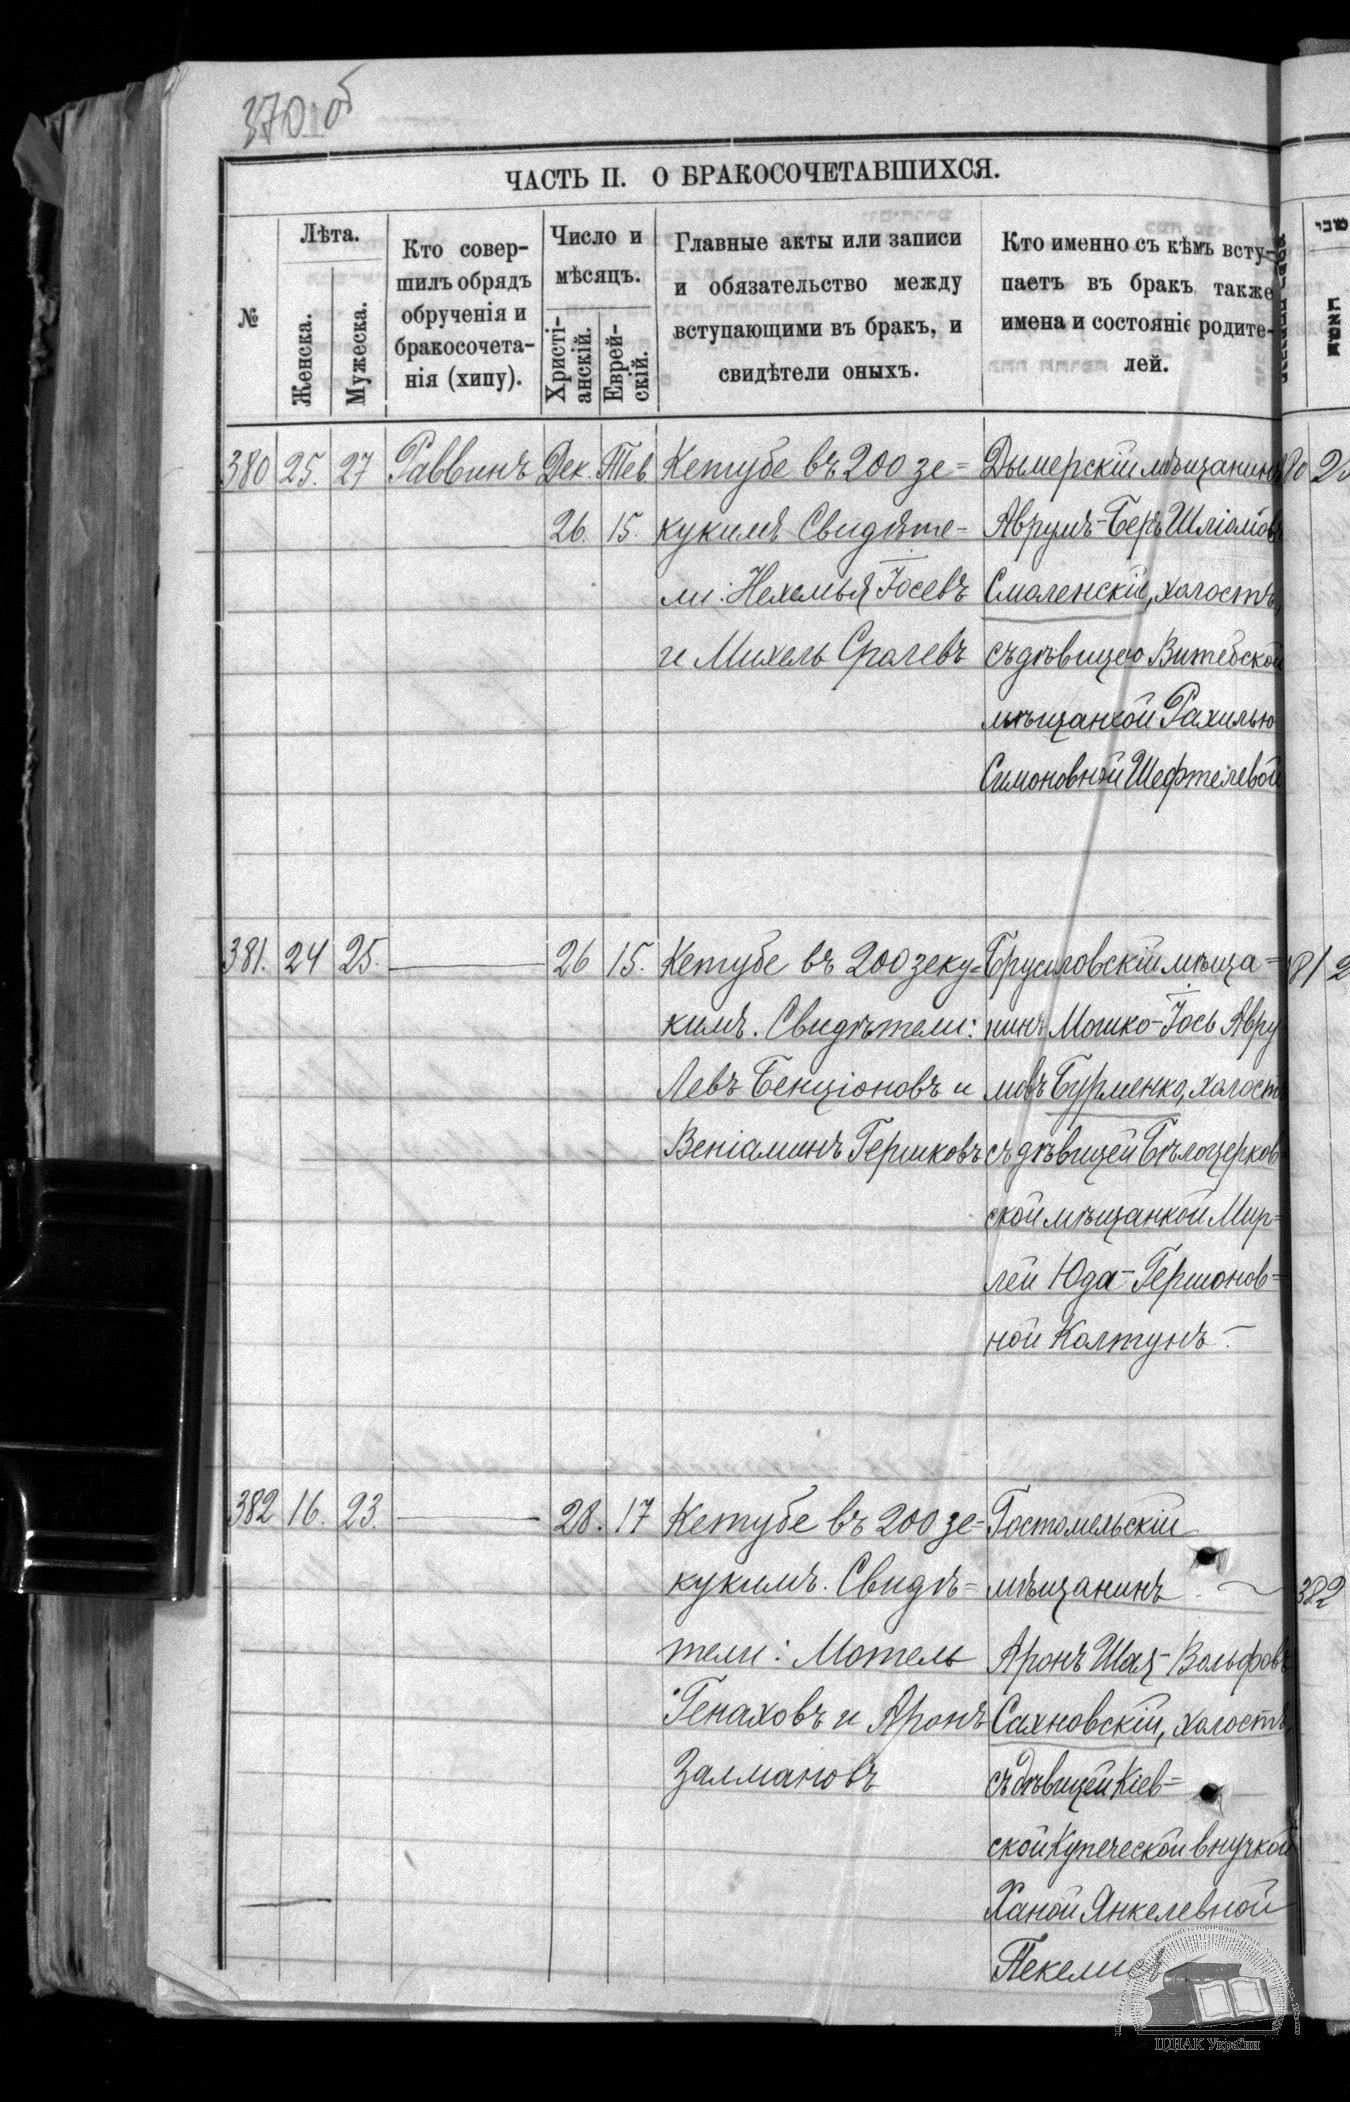 370 об
ЧАСТЬ II. О БРАКОСОЧЕТАВШИХСЯ.
№
Лѣта.
Женска.
Мужеска.
Кто совер-
шилъ обрядъ
обрученія и
бракосочета-
нія (хипу).
Число и
мѣсяцъ.
Христі-
анскій.
Еврей-
скій.
Главные акты или записи
и обязательство между
вступающими въ бракъ, и
свидѣтели оныхъ.
Кто именно съ кѣмъ всту-
паетъ въ бракъ также
имена и состояніе родите-
лей.
380 25. 27 Раввинъ Дек. Тев.
26. 15.
Кетубе въ 200 зе=
кукимъ Свидѣте-
ли: Нехемья Іосевъ
и Михель Сролевъ
Дымерскій мѣщанинъ
Аврумъ-Беръ Шліомовъ
Смоленскій, холостъ,
съ дѣвицею Витебской
мѣщанкой Рахилью
Симоновной Шефтелевой
381. 24 25. 26 15.
Кетубе въ 200 зеку=
кимъ. Свидѣтели:
Левъ Бенціоновъ и
Веніаминъ Гершковъ
Брусиловскій мѣща=
нинъ Мошко-Іось Авру
мовъ Бурменко, холостъ
съ дѣвицей Бѣлоцерков=
ской мѣщанкой Мир=
лей Юда-Гершонов=
ной Колтунъ.-
382 16. 23. 28. 17
Кетубе въ 200 зе=
кукимъ. Свидѣ=
тели: Мотель
Генаховъ и Аронъ
Залмановъ
Гостомельскій
мѣщанинъ
Аронъ Шая-Вольфовъ
Сахновскій, холостъ,
съ дѣвицей Кіев=
ской Купеческой внучкой
Ханой Янкелевной
Пекелис
382
ЦДІАК України